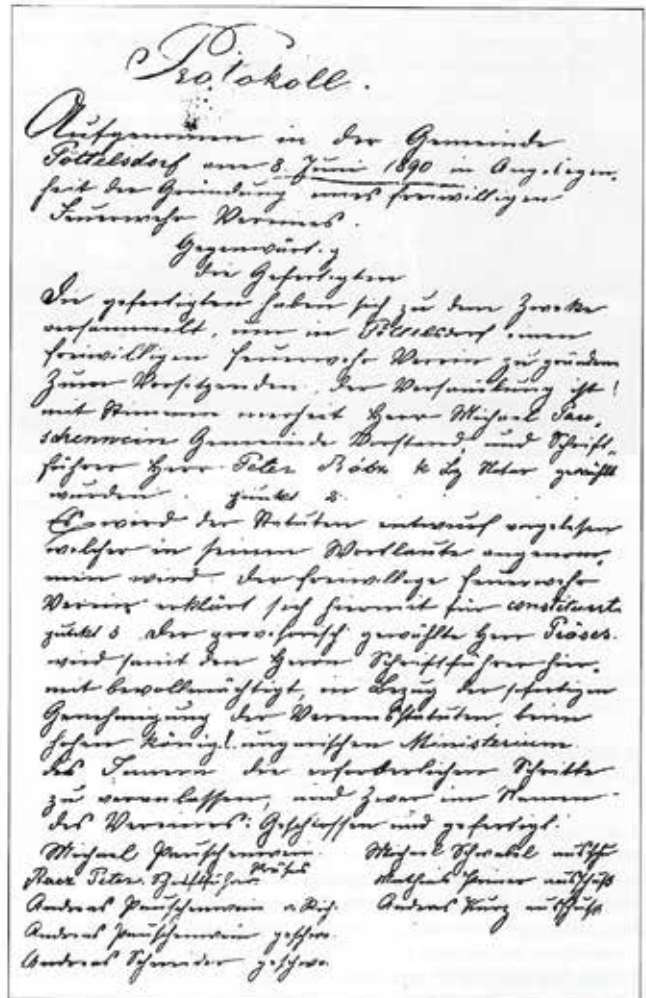 Protokoll.
Aufgenommen in der Gemeinde
Pöttelsdorf am 8. Juni 1890 in Angelegen-
heit der Gründung eines freiwilligen
Feuerwehr Vereines.
Gegenwärtig
die Gefertigten
Die gefertigten haben sich zu dem Zwecke
versammelt, um in Pöttelsdorf einen
freiwilligen Feuerwehr Verein zu gründen
Zum Vorsitzenden der Versammlung ist
mit Stimmen merheit Herr Michael Pau-
schenwein Gemeinde Vorstand, und Schrift-
führer Herr Peter Notär gewählt
wurden. punkt 2.
Es wird der Statuten entwurf vorgelesen
welcher in seinem Wortlaute angenom-
men wird. Der freiwillige Feuerwehr
Verein erklärt sich hiermit für constituert
punkt 3 Der provisorisch gewählte Herr Präses
wird samt den Herrn Schriftführer hier-
mit bevollmächtigt, in Bezug der
Genehmigung der Vereinsstatuten, beim
hohen königl. ungarischen Ministerium
des Innern die erforderlichen Schritte
zu veranlassen, und zwar im Namen
des Vereines. Geschlossen und gefertigt.
Michael Pauschenwein Präses
Peter Schriftführer
Andreas Pauschenwein
Andreas Pauschenwein geschw.
Andreas Schneider geschw.
Michael
Mathias auschuß
Andreas Kurz auschuß